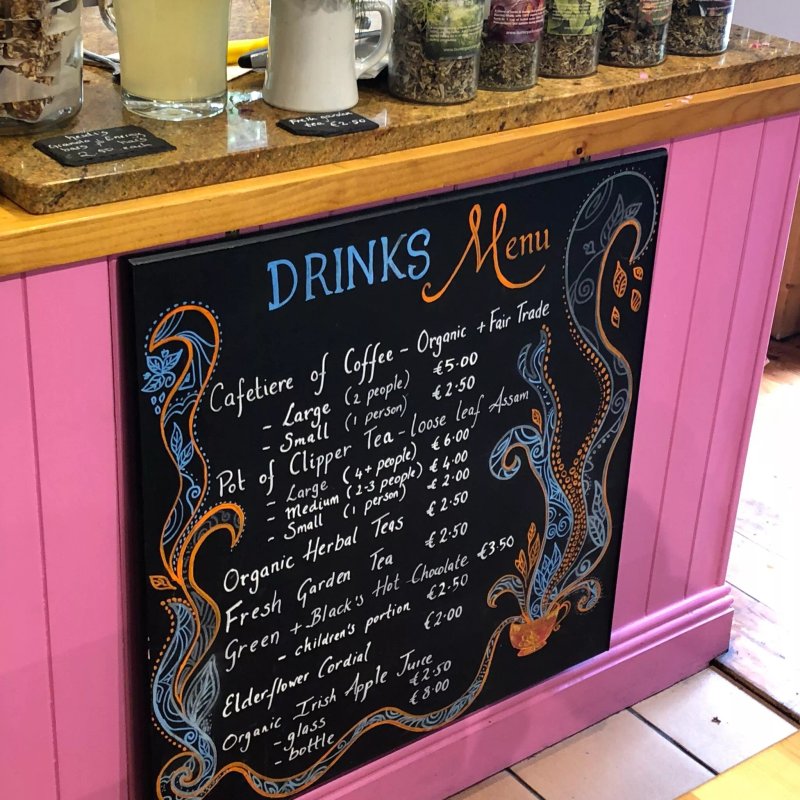 Heidi's
Granola + Energy
bars Balls
2.50 each
Fresh garden
tea €2.50
DRINKS Menu
Cafetiere of Coffee - Organic + Fair Trade
- Large (2 people) €5.00
- Small (1 person) €2.50
Pot of Clipper Tea - loose leaf Assam
- Large (4+ people) €6.00
- Medium (2-3 people) €4.00
- Small (1 person) €2.00
Organic Herbal Teas €2.50
Fresh Garden Tea €2.50
Green + Black's Hot Chocolate €3.50
- children's portion €2.50
Elderflower Cordial €2.00
Organic Irish Apple Juice
- glass €2.50
- bottle €8.00